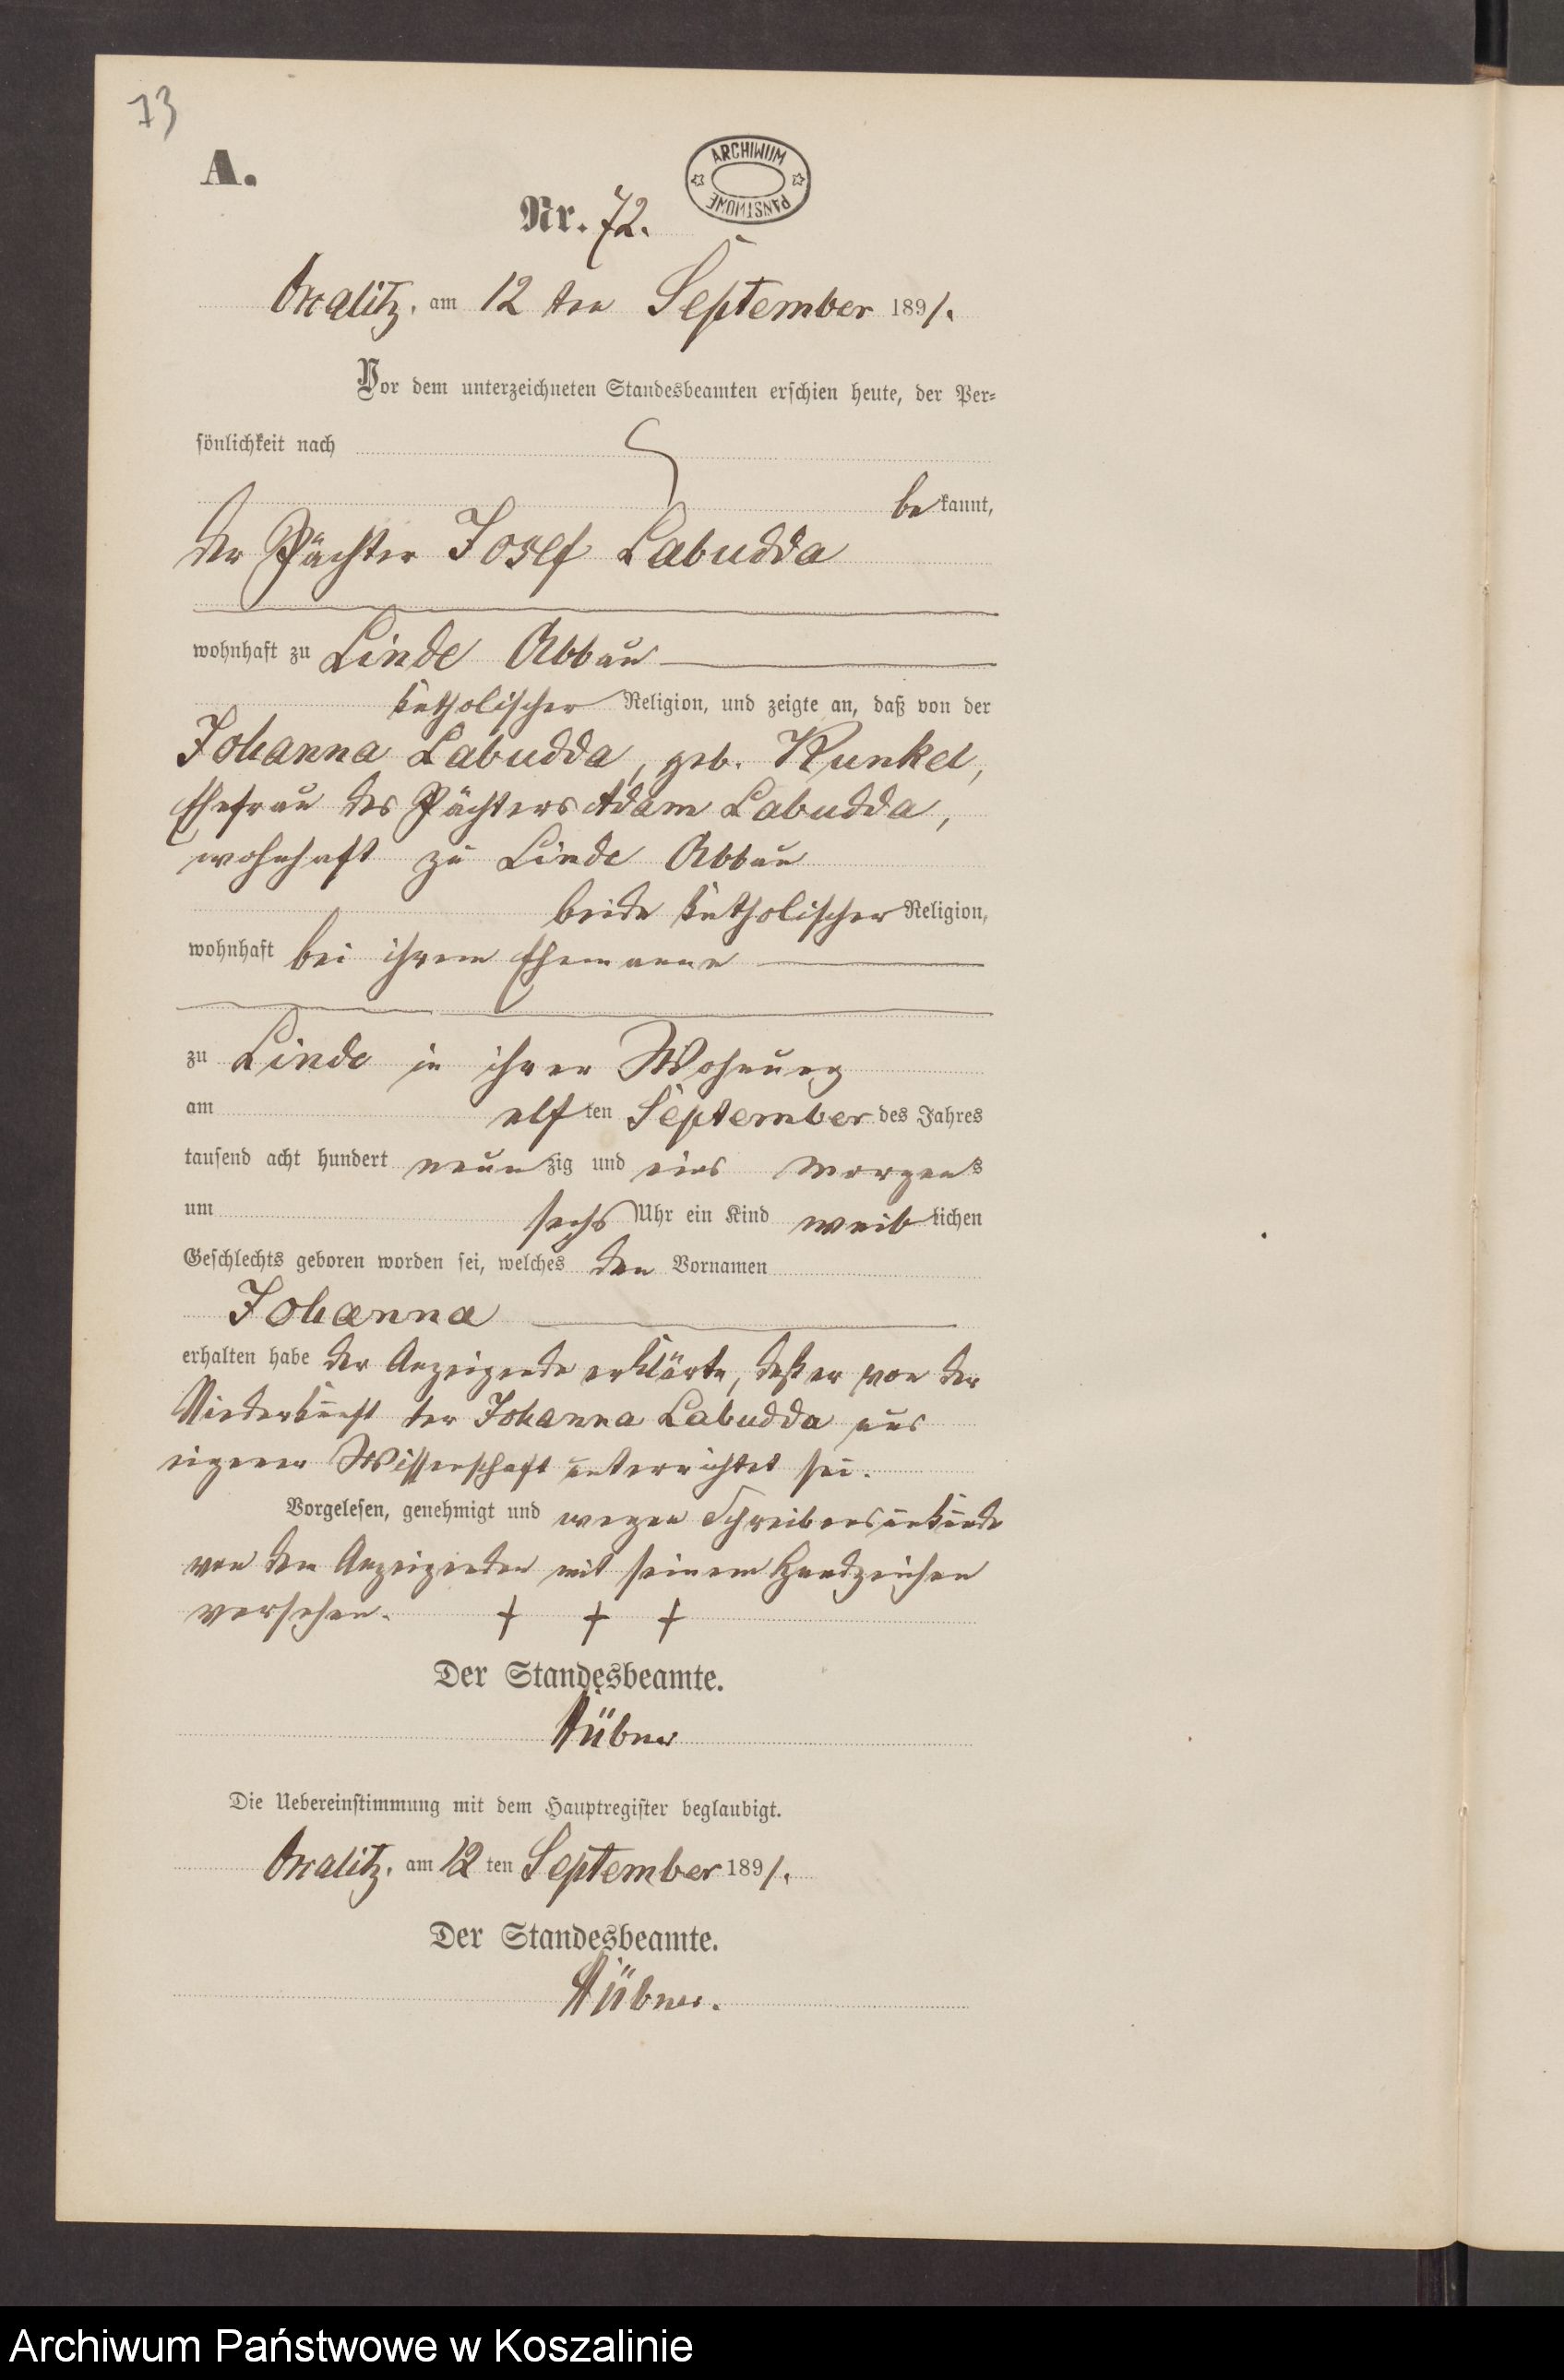 73
A.
ARCHIWUM PAŃSTWOWE
Nr. 72.
am 12 ten September 1891.
Vor dem unterzeichneten Standesbeamten erschien heute, der Per-
sönlichkeit nach
bekannt,
der Pächter Josef Labudda
wohnhaft zu Linde Abbau
katholischer Religion, und zeigte an, daß von der
Johanna Labudda, geb. Kunkel,
Ehefrau des Pächters Adam Labudda,
wohnhaft zu Linde Abbau
beide katholischer Religion,
wohnhaft bei ihrem Ehemanne
zu Linde in ihrer Wohnung
am elften September des Jahres
tausend acht hundert neunzig und eins Morgens
um sechs Uhr ein Kind weiblichen
Geschlechts geboren worden sei, welches den Vornamen
Johanna
erhalten habe der Anzeigende erklärte, daß er von der
Niederkunft der Johanna Labudda aus
eigener Wissenschaft unterrichtet sei.
Vorgelesen, genehmigt und wegen Schreibensunkunde
von dem Anzeigenden mit seinem Handzeichen
versehen. + + +
Der Standesbeamte.
Hübner
Die Uebereinstimmung mit dem Hauptregister beglaubigt.
am 12 ten September 1891.
Der Standesbeamte.
Hübner.
Archiwum Państwowe w Koszalinie